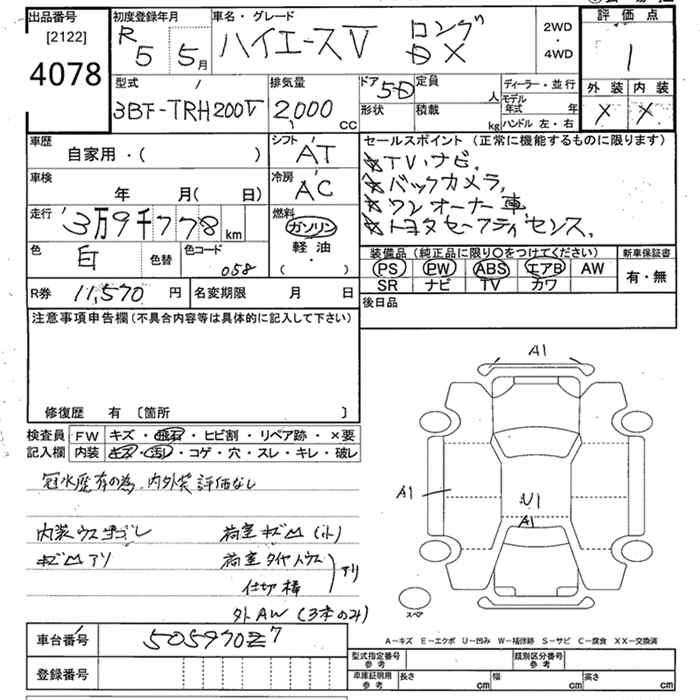 出品番号
[2122]
4078
初度登録年月
R 5 年 5 月
車名・グレード
ハイエースV ロング DX
2WD
・
4WD
評価点
1
外装 内装
X X
型式
3BF-TRH200V
排気量
2,000 cc
ドア 5D
定員 人
形状
積載 kg
ディーラー・並行
モデル年式 年
ハンドル 左・右
車歴
自家用・( )
シフト
AT
車検
年 月( 日)
冷房
AC
走行
3万9千778 km
燃料
ガソリン
軽油
・
( )
色
白
色替
色コード
058
セールスポイント (正常に機能するものに限ります)
☆TV、ナビ、
☆バックカメラ、
☆ワンオーナー車
☆トヨタセーフティセンス、
装備品 (純正品に限り〇をつけてください)
PS PW ABS エアB AW
SR ナビ TV カワ
新車保証書
有・無
R券 11,570 円
名変期限 月 日
後日品
注意事項申告欄 (不具合内容等は具体的に記入して下さい)
修復歴 有 〔箇所 〕
検査員
記入欄
FW キズ・飛石・ヒビ割・リペア跡・×要
内装 キズ・汚レ・コゲ・穴・スレ・キレ・破レ
冠水歴有の為、内外装評価なし
内装ウスヨゴレ
キズ凹アリ
荷室キズ凹(小)
荷室タイヤハウス
仕切棒
アリ
外AW (3本のみ)
A1
A1
U1
A1
スペア
車台番号 5059702 7
登録番号
A−キズ E−エクボ U−凹み W−補修跡 S−サビ C−腐食 XX−交換済
型式指定番号
参考
類別区分番号
参考
車庫証明用
参考
長さ cm
幅 cm
高さ cm